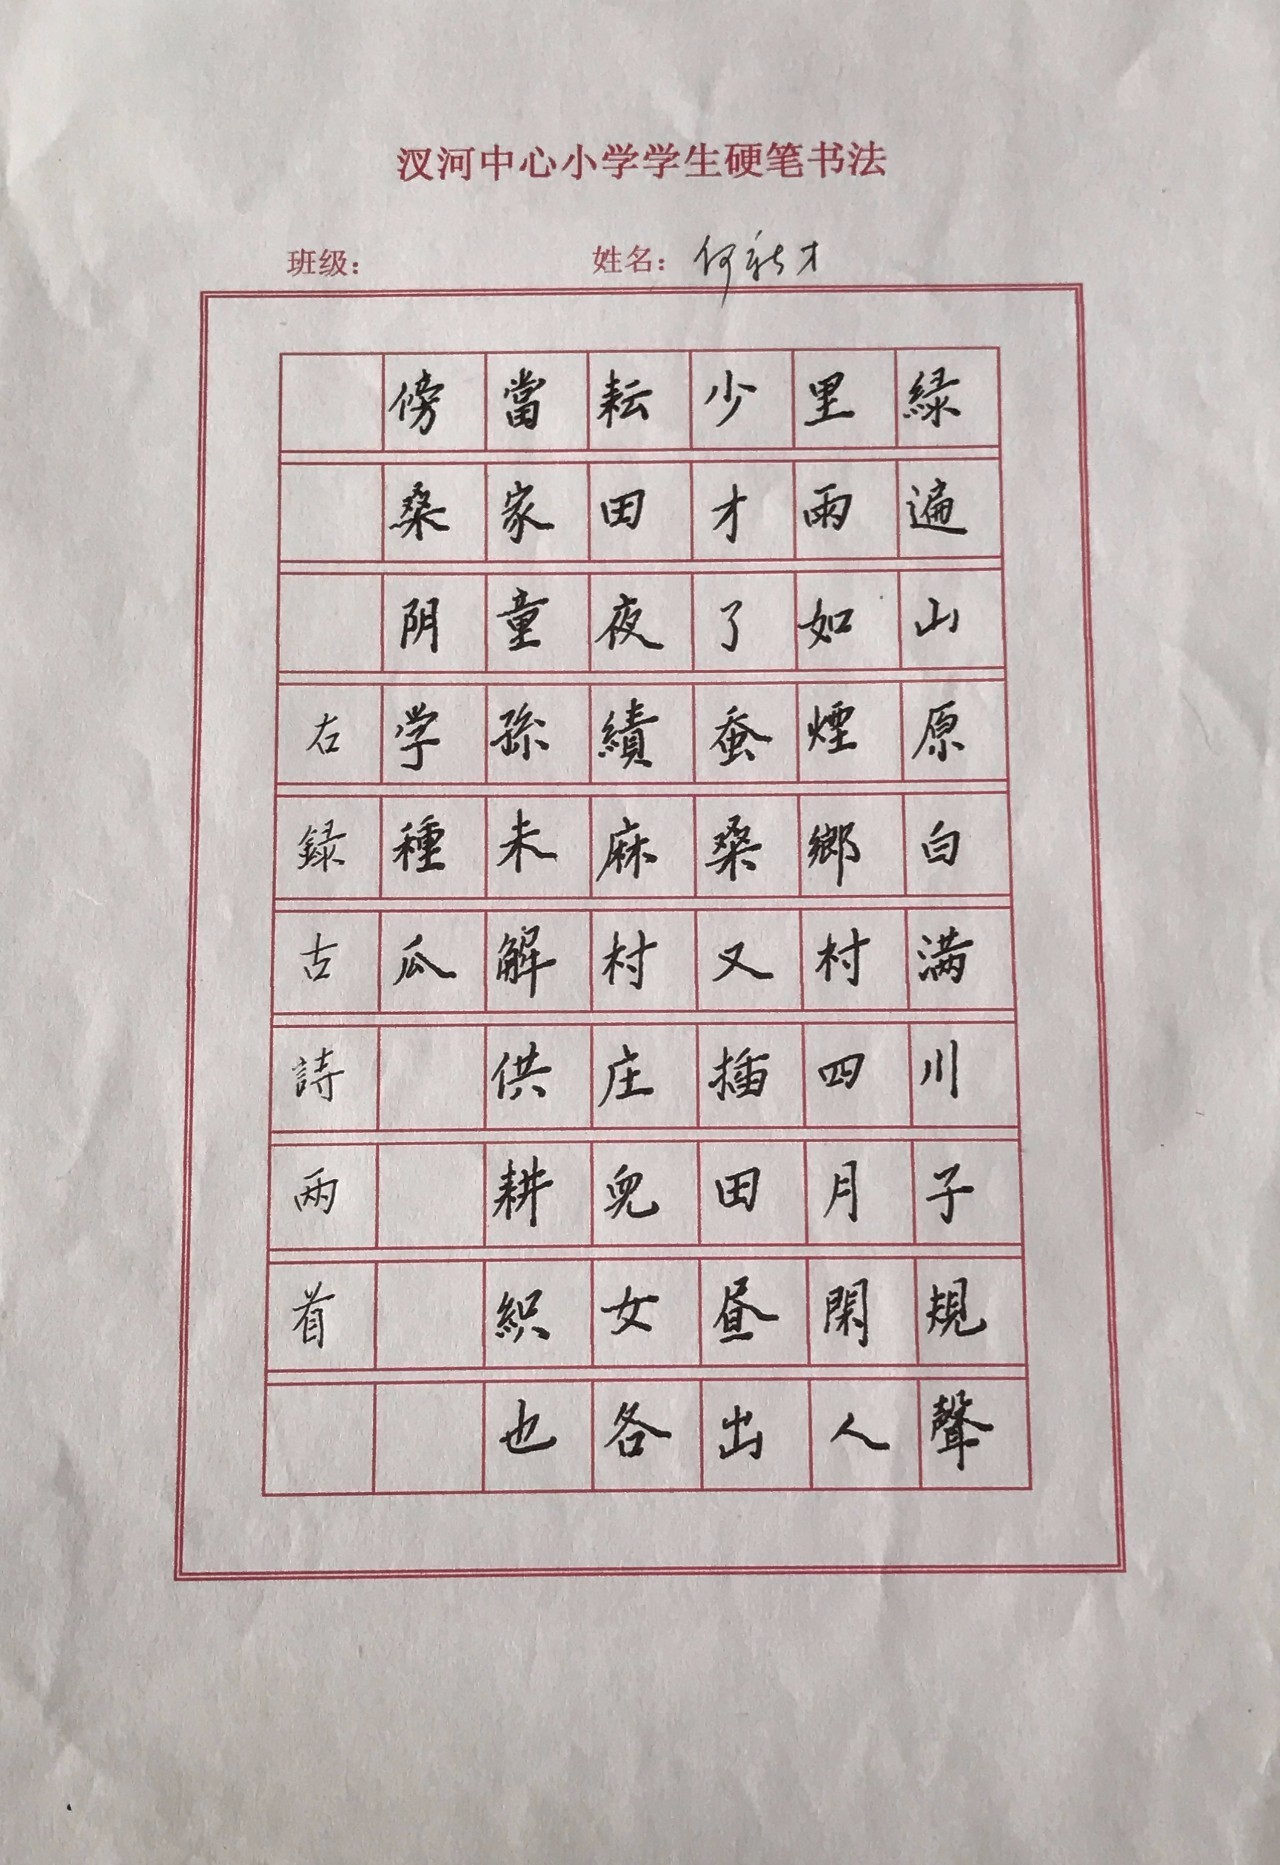 汊河中心小学学生硬笔书法
班级：
姓名：何秋才
緑遍山原白满川子規聲
里雨如煙鄉村四月閑人
少才了蚕桑又插田昼出
耘田夜績麻村庄兒女各
當家童孫未解供耕織也
傍桑阴学種瓜
右録古詩两首